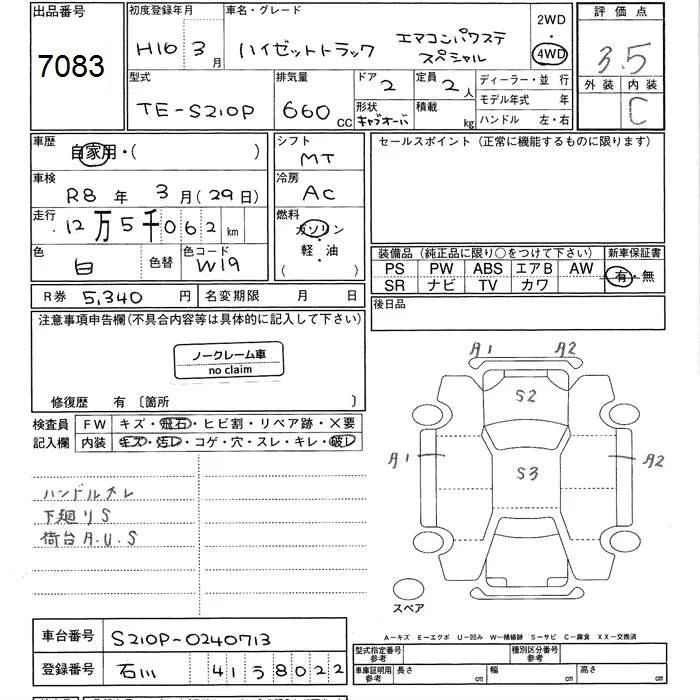 出品番号
7083
初度登録年月
H16 3月
車名・グレード
ハイゼットトラック エアコンパワステ スペシャル
2WD
・
4WD
評価点
3.5
外装 内装
C
型式
TE-S210P
排気量
660 CC
ドア
2
定員
2人
形状
キャブオーバ
積載
kg
ディーラー・並行
モデル年式 年
ハンドル 左・右
車歴
自家用・( )
シフト
MT
セールスポイント (正常に機能するものに限ります)
車検
R8年 3月(29日)
冷房
AC
走行
12万5千062km
燃料
ガソリン
・
軽・油
( )
色
白
色替
色コード
W19
装備品 (純正品に限り○をつけて下さい)
新車保証書
PS PW ABS エアB AW
SR ナビ TV カワ
有・無
R券 5,340 円
名変期限 月 日
後日品
注意事項申告欄(不具合内容等は具体的に記入して下さい)
ノークレーム車
no claim
修復歴 有 〔箇所 〕
検査員
記入欄
FW キズ・飛石・ヒビ割・リペア跡・×要
内装 キズ・汚レ・コゲ・穴・スレ・キレ・破レ
ハンドルスレ
下廻りS
荷台A.U.S
A1 A2
S2
A1 S3 A2
スペア
A-キズ E-エクボ U-凹み W-補修跡 S-サビ C-腐食 XX-交換済
車台番号
S210P-0240713
登録番号
石川 41 う 8022
型式指定番号
参考
種別区分番号
参考
車庫証明用
参考
長さ cm 幅 cm 高さ cm